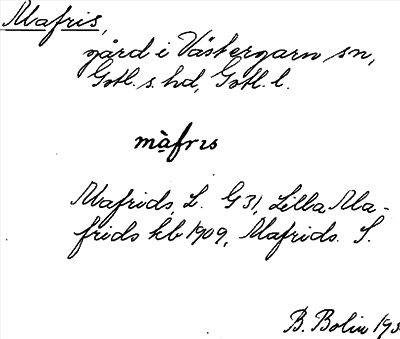 Mafris,
gård i Västergarn sn,
Gotl. s. hd, Gotl. l.
màfrıs
Mafrids, L. G 31, Lilla Ma-
frids kb 1909, Mafrids. S.
B. Bolin 193